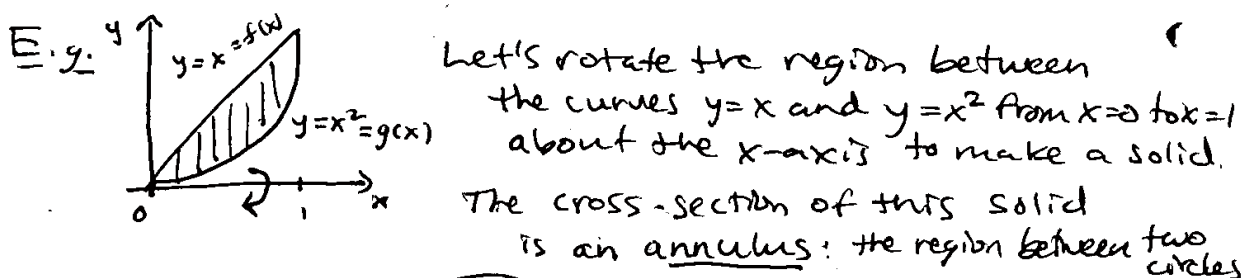 E.g.
y
y=x=f(x)
y=x²=g(x)
0
1
x
Let's rotate the region between
the curves y=x and y=x² from x=0 to x=1
about the x-axis to make a solid.
The cross-section of this solid
is an annulus: the region between two
circles